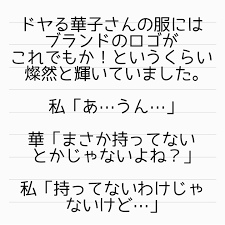 ドヤる華子さんの服には
ブランドのロゴが
これでもか！というくらい
燦然と輝いていました。
私「あ…うん…」
華「まさか持ってない
とかじゃないよね？」
私「持ってないわけじゃ
ないけど…」